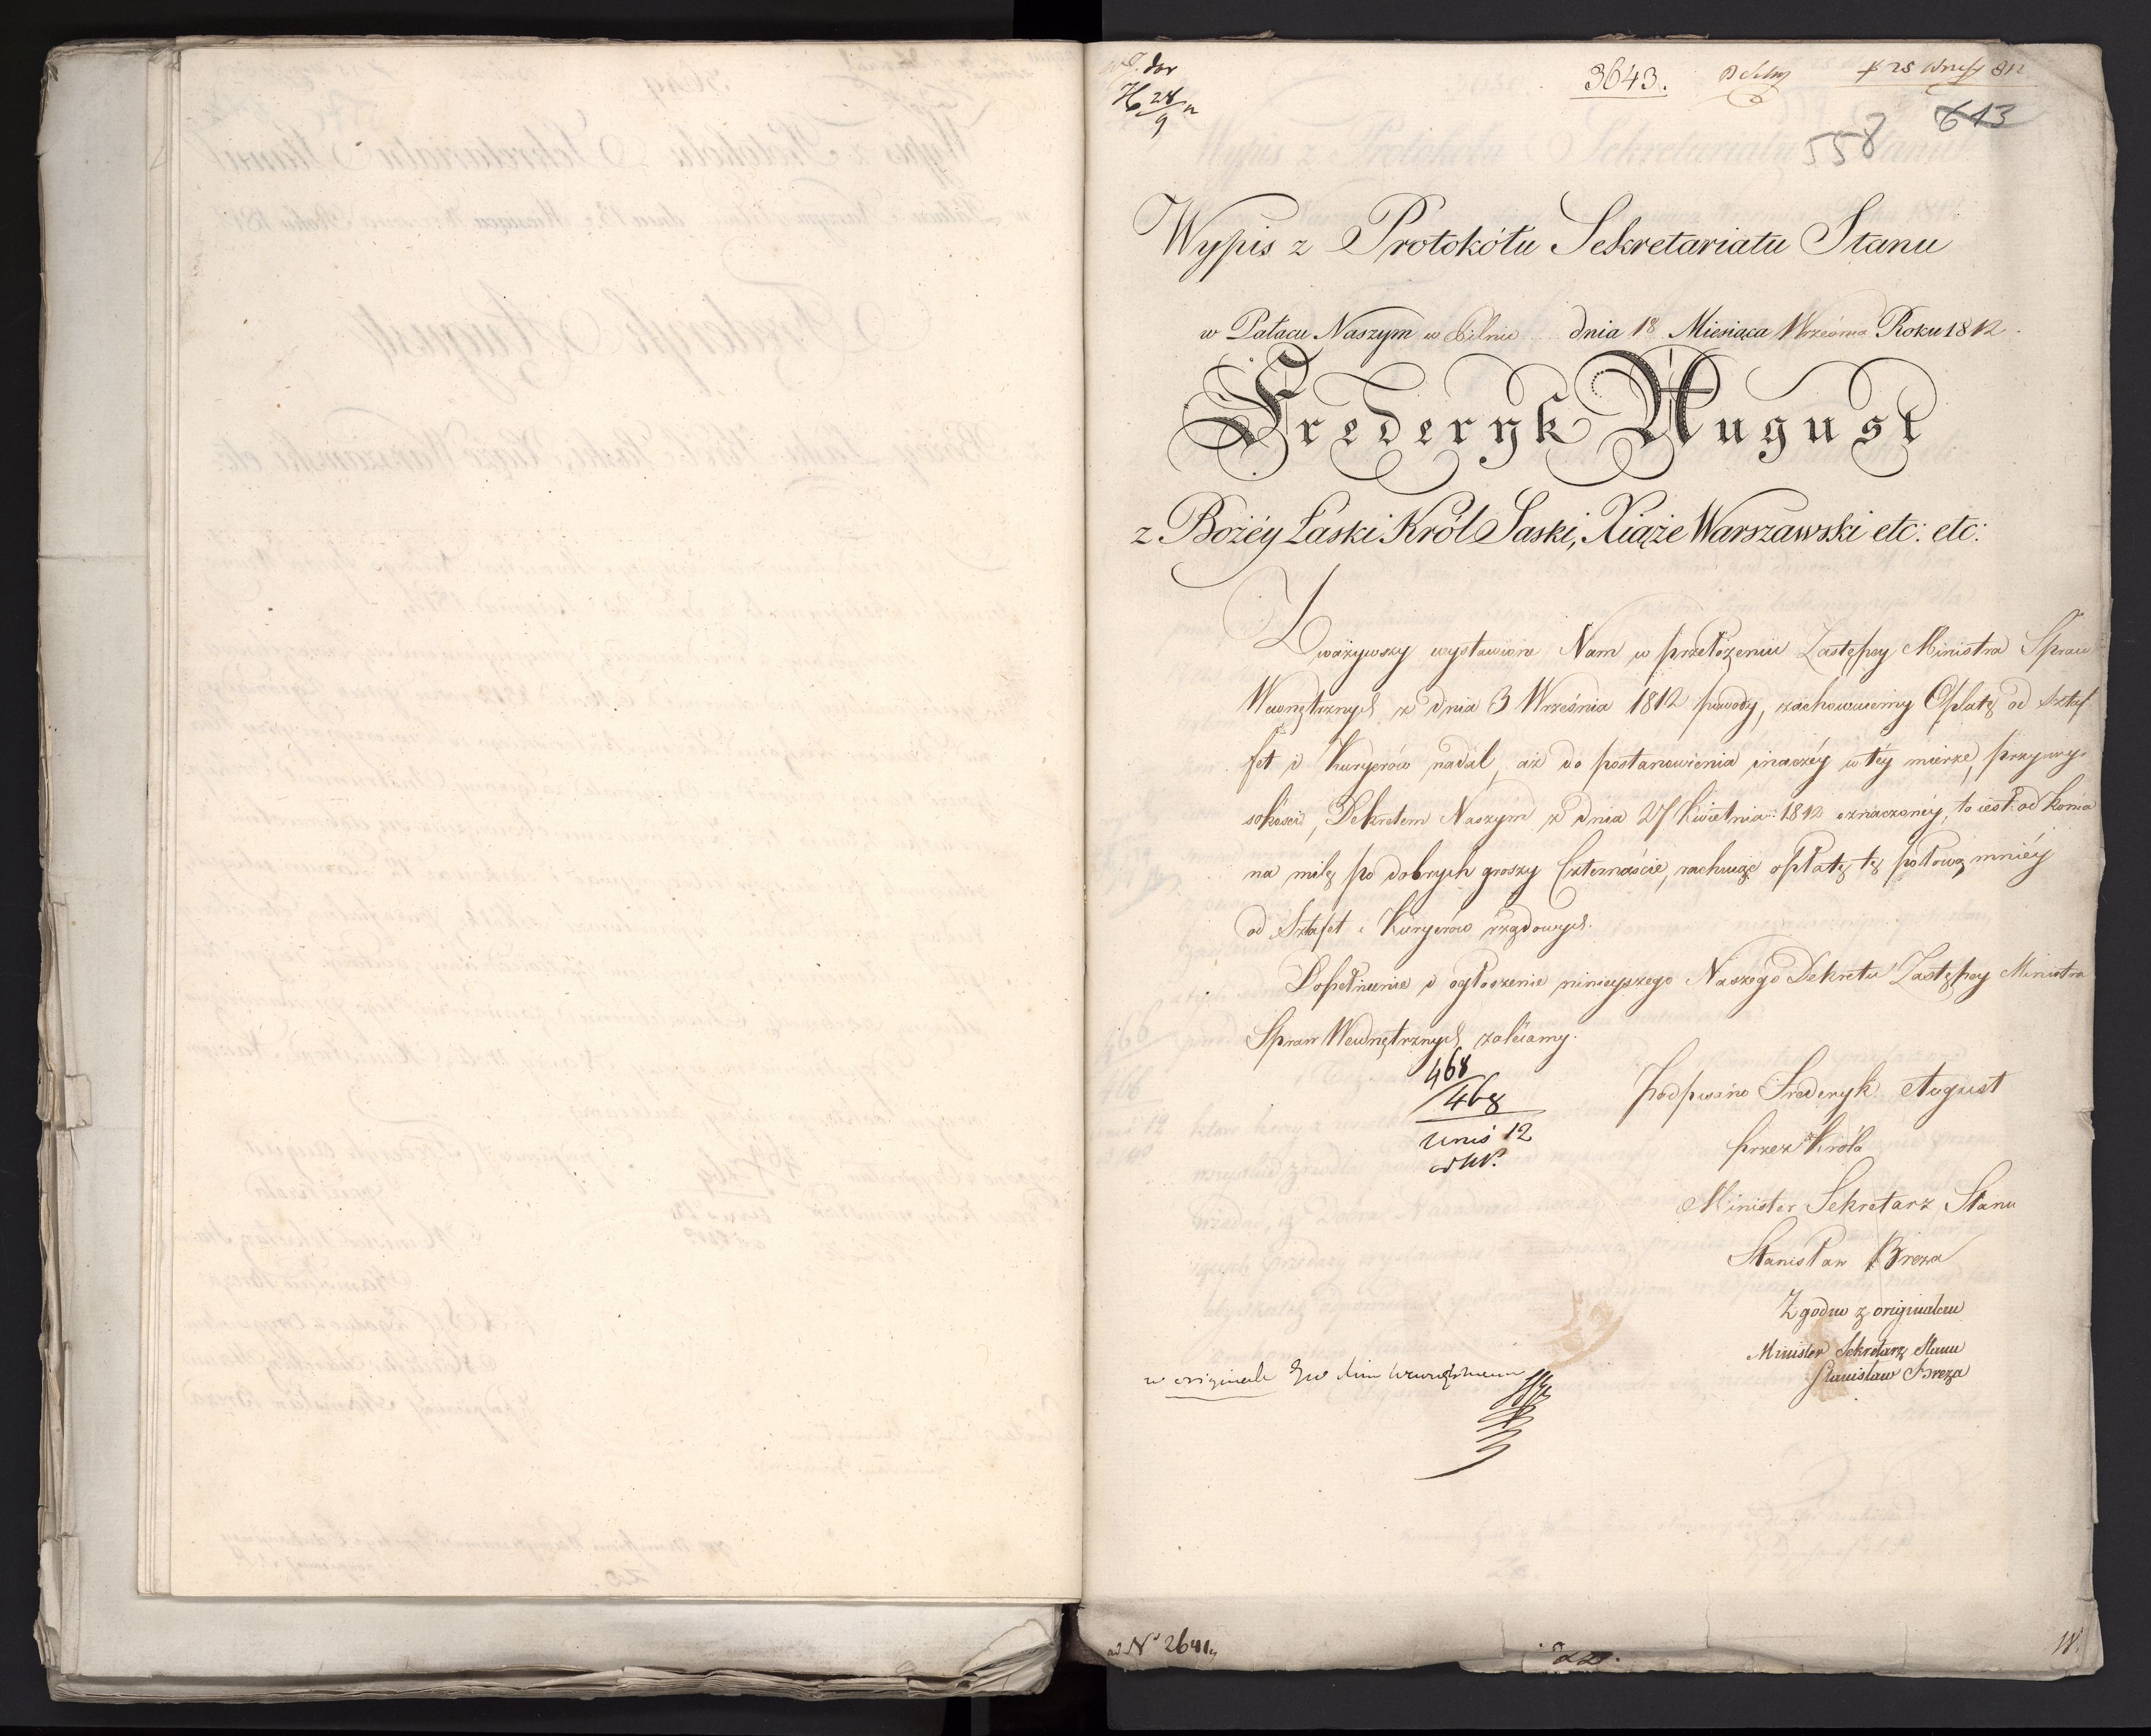 3643.
25 Wrześ 812
613
558
28
9
Wypis z Protokółu Sekretariatu Stanu
w Pałacu Naszym w Pilnic dnia 18 Miesiąca Września Roku 1812.
Frederyk August
z Bożéy Łaski Król Saski, Xiąże Warszawski etc: etc:
Zważywszy wystawione Nam w przełożeniu Zastępcy Ministra Spraw
Wewnętrznych z dnia 3 Września 1812 powody, zachowuiemy Opłatę od Sztaf
fet i Kuryerów nadal, aż do postanowienia inaczéy w téy mierze, przy wy-
sokości, Dekretem Naszym z dnia 27 Kwietnia 1812 oznaczonéy, to iest: od konia
na milę po dobrych groszy Czternaście, rachuiąc opłatę tę połową mniéy
od Sztafet i Kuryerów rządowych.
Dopełnienie i ogłoszenie ninieyszego Naszego Dekretu Zastępcy Ministra
Spraw Wewnętrznych zalecamy.
468
468
12
Podpisano Frederyk August
przez Króla
Minister Sekretarz Stanu
Stanisław Breza
Zgodno z originałem
Minister Sekretarz Stanu
Stanisław Breza
w originale
ad Nº 2641
22.